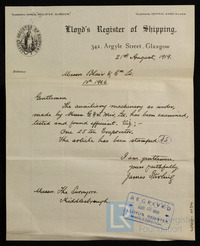 Lloyd's Register of Shipping.
342, Argyle Street, Glasgow
21st August, 1919.
Messrs Blair & Co Ld.
Gentlemen
The auxiliary machinery as under,
made by Messrs G & J. Weir Ltd, has been examined,
tested and found efficient, viz:-
One 25 ton Evaporator.
The article has been stamped
I am gentlemen
yours faithfully
James Stirling
Messrs The Surveyors
Middlesbrough
RECEIVED